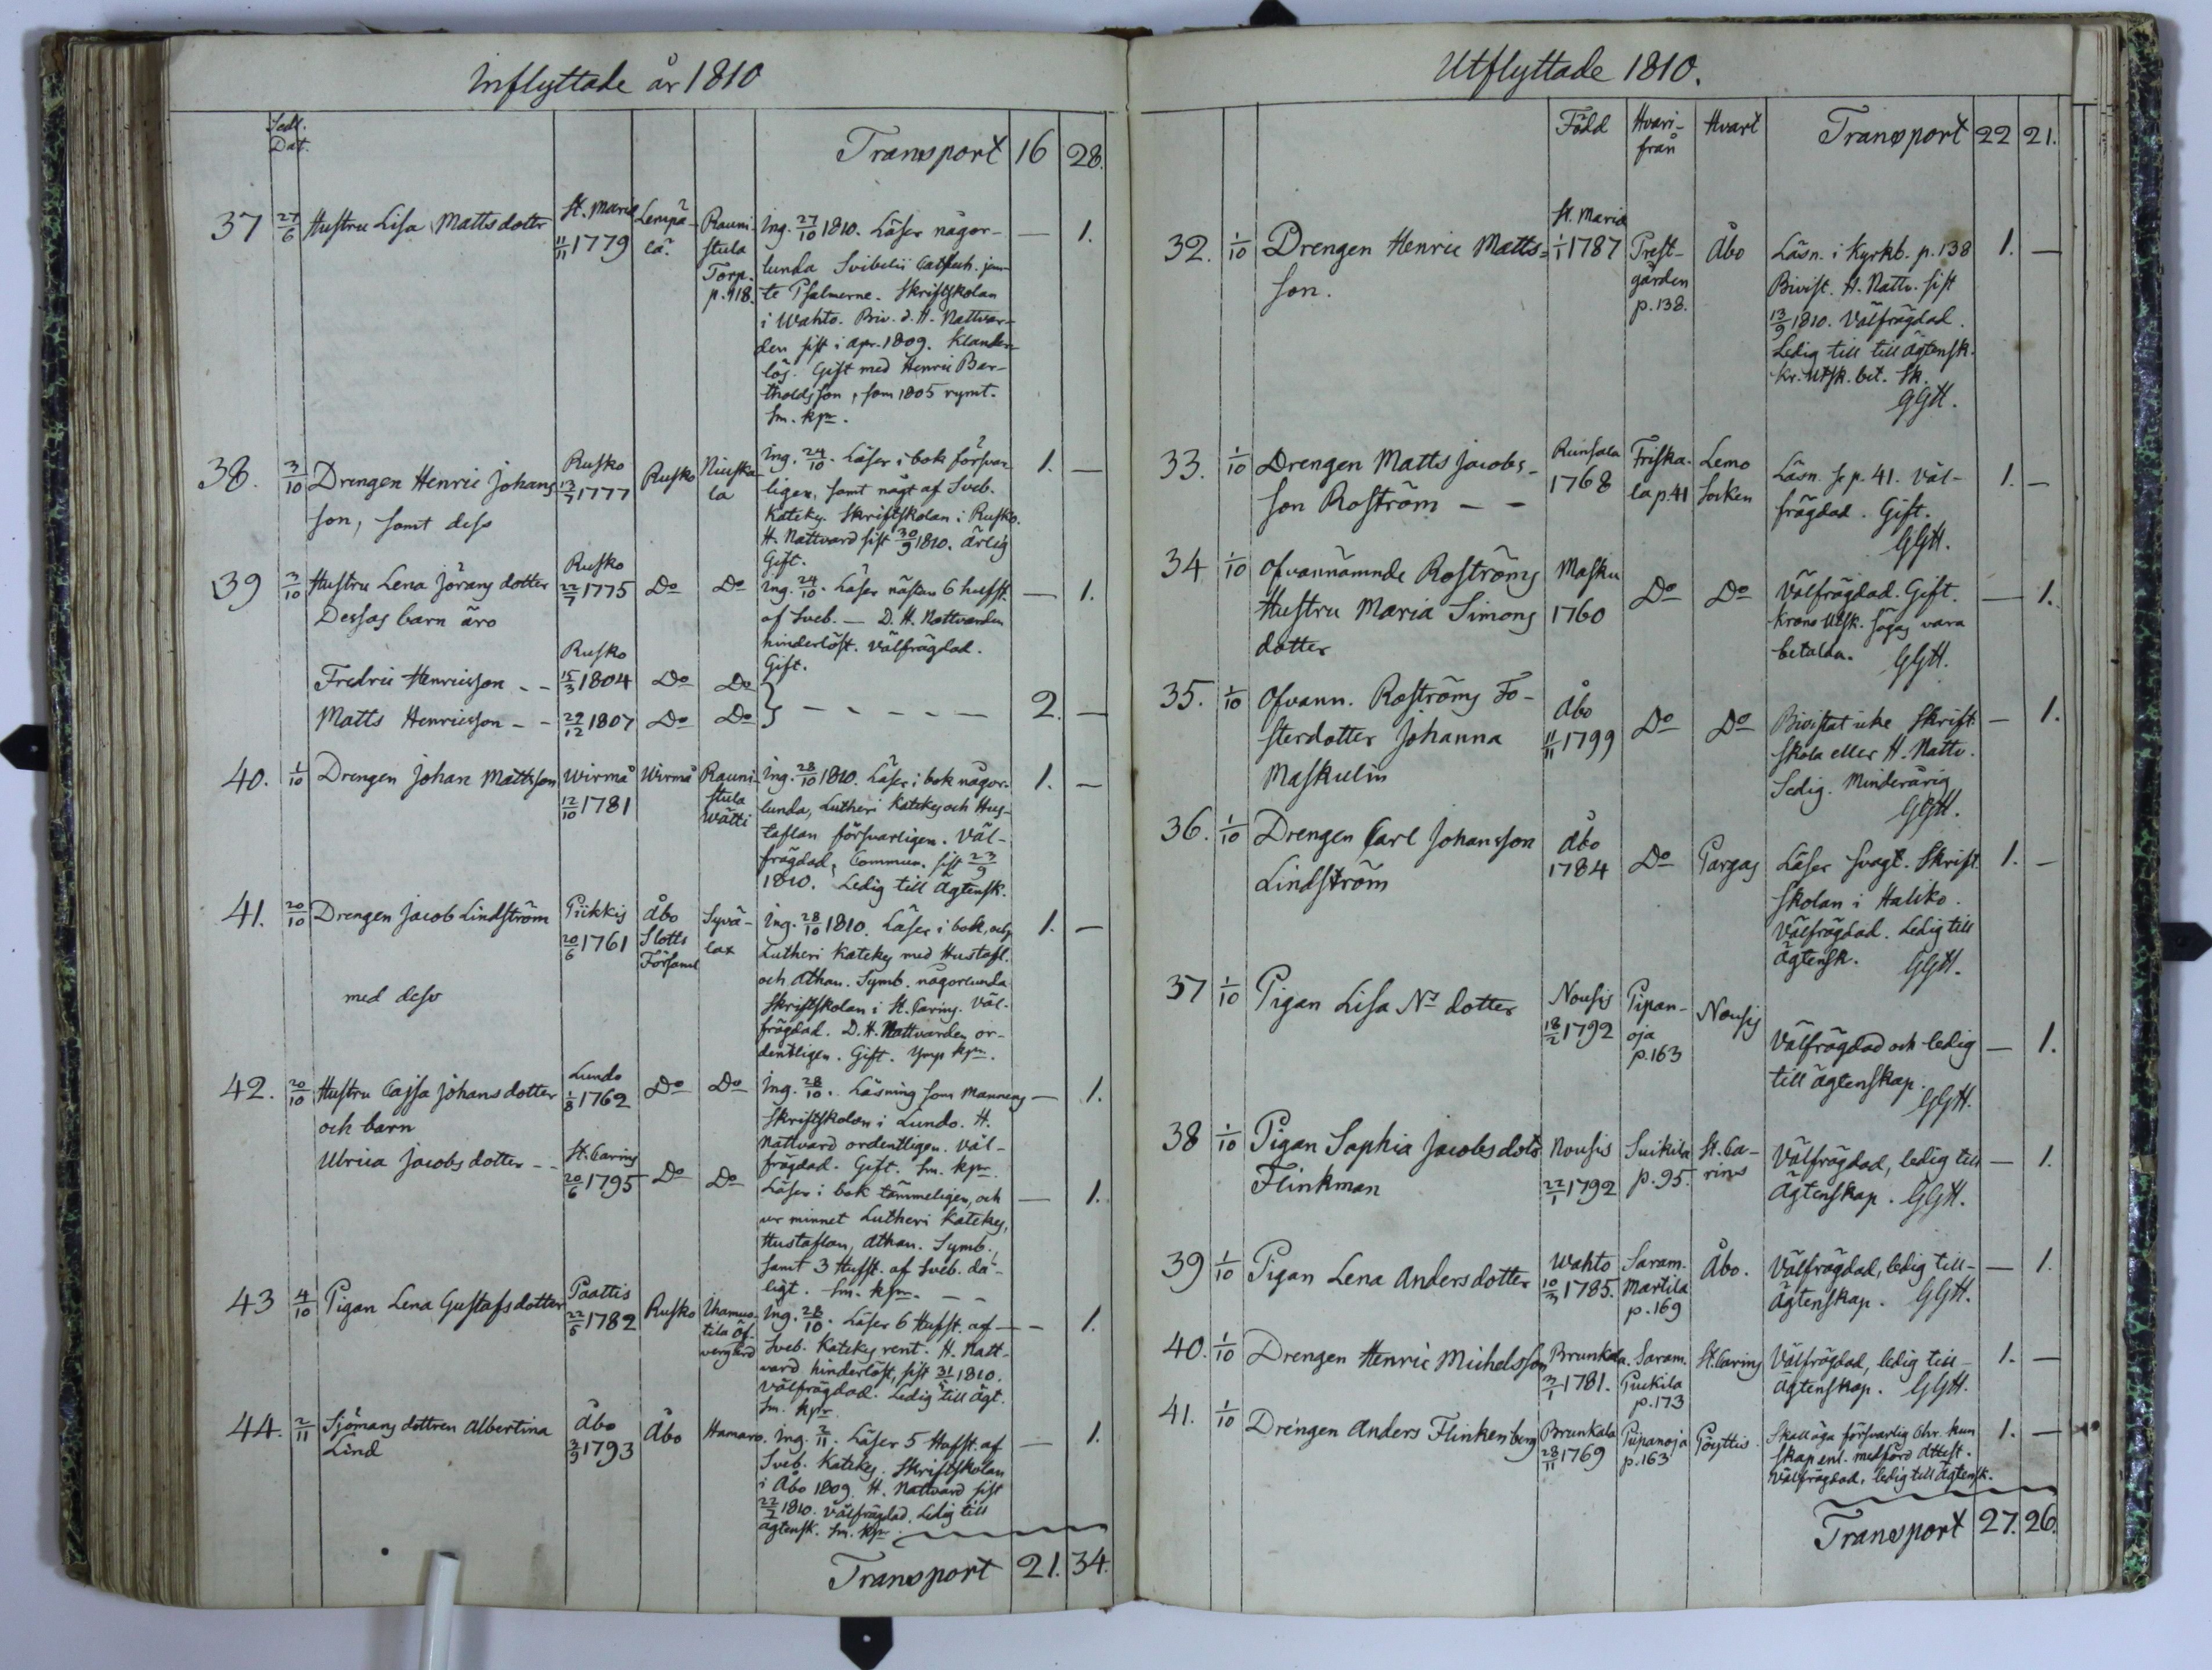 Inflyttade år 1810
Sedl.
Dat.
Transport 16 28.
37 27/6 Hustru Lisa Matts dotter St. Mariæ 11/11 1779 Lempä-
lä. Rauni-
stula
Torp.
p. 118.
Ing. 27/10 1810. Läser någor-
lunda Svibelii Catech. jem-
te Psalmerne. Skriftskolan
i Wahto. Biv. d. H. Nattvar-
den sist i Apr. 1809. Klander-
lös. Gift med Henric Ber-
tholdsson, som 1805 rymt.
Sm. kpr. — 1.
38. 3/10 Drengen Henric Johans
son, samt dess Rusko 13/7 1777 Rusko Niuska-
la
Ing. 24/10. Läser i bok försvar
ligen, samt någt af Sveb.
Kateky. Skriftskolan i Rusko.
H. Nattvard sist 30/9 1810. Ärlig
Gift. 1. —
39 3/10 Hustru Lena Jörans dotter Rusko 22/7 1775 Do Do
Dessas barn äro
Ing. 24/10. Läser nästan 6 hufst.
af Sveb. — D. H. Nattvarden
hinderlöst. Välfrägdad.
Gift. — 1.
Fredric Henricsson - - Rusko 15/3 1804 Do Do
Matts Henricsson - - 29/12 1807 Do Do } - - - - - — 2. —
40. 1/10 Drengen Johan Mattsson Wirmå 12/10 1781 Wirmå Rauni-
stula
Wätti
Ing. 28/10 1810. Läser i bok någor-
lunda, Lutheri Katekes och Hus-
taflan försvarligen. Väl-
frägdad, Commun. sist 23/9
1810. Ledig till Ägtensk. 1. —
41. 20/10 Drengen Jacob Lindström Piikkis 20/6 1761 Åbo
Slotts
Församl Syvä-
lax
med dess
Ing. 28/10 1810. Läser i bok, och
Lutheri Katekes med Hustafl.
och Athan. Symb. någorlunda
Skriftskolan i St. Carins. Väl-
frägdad. D. H. Nattvarden or-
dentligen. Gift. kpr. 1. —
42. 20/10 Hustru Cajsa Johans dotter Lundo 1/8 1762 Do Do
och barn
Ing. 28/10. Läsning som Mannens
Skriftskolan i Lundo. H.
Nattvard ordentligen. Väl-
frägdad. Gift. Sm. kpr. — 1.
Ulrica Jacobs dotter - - St. Carins 20/6 1795 Do Do
Läser i bok tämmeligen, och
ur minnet Lutheri Katekes,
Hustaflan, Athan. Symb.,
samt 3 Hufst. af Sveb. då-
ligt. Sm. kpr. - - — 1.
43 4/10 Pigan Lena Gustafs dotter Paattis 22/5 1782 Rusko Ihamus-
tila Öf-
vergård
Ing. 28/10. Läser 6 Hufst. af
Sveb. Katekes rent. H. Natt-
vard hinderlöst, sist 31/ 1810.
Välfrägdad. Ledig till Ägt.
Sm. kpr. — 1.
44. 2/11 Sjömans dottren Albertina
Lind Åbo 3/9 1793 Åbo Hamaro.
Ing. 2/11. Läser 5 Hufst. af
Sveb. Katekes. Skriftskolan
i Åbo 1809. H. Nattvard sist
22/2 1810. Välfrägdad. Ledig till
ägtensk. Sm. kpr. — 1.
Transport 21. 34.
Utflyttade 1810.
Född Hvari-
från Hvart Transport 22 21.
32. 1/10 Drengen Henric Matts-
son. St. Mariæ 1/1 1787 Prest-
gården
p. 138. Åbo
Läsn. i Kyrkb. p. 138
Bivist. H. Nattv. sist
13/9 1810. Välfrägdad.
Ledig till till Ägtensk.
Kr. Utsk. bet. Sk.
GGH. 1. —
33. 1/10 Drengen Matts Jacobs-
son Roström - - Runsala 1768 Friska-
la p. 41 Lemo
Socken
Läsn. se p. 41. Väl-
frägdad. Gift.
GGH. 1. —
34 1/10 Ofvannämnde Roströms
Hustru Maria Simons
dotter Masku 1760 Do Do
Välfrägdad. Gift.
Krono Utsk. sägas vara
betalda. GGH. — 1.
35. 1/10 Ofvann. Roströms Fo-
sterdotter Johanna
Maskulin Åbo 11/11 1799 Do Do
Bivistat icke Skrift-
skola eller H. Nattv.
Ledig. Minderårig
GGH. — 1.
36. 1/10 Drengen Carl Johansson
Lindström Åbo 1784 Do Pargas
Läser svagt. Skrift
skolan i Haliko.
Välfrägdad. Ledig till
Ägtensk. GGH. 1. —
37 1/10 Pigan Lisa Ns dotter Nousis 18/2 1792 Pipan-
oja
p. 163 Nousis
Välfrägdad och ledig
till Ägtenskap.
GGH. — 1.
38 1/10 Pigan Sophia Jacobs dotr
Flinkman Nousis 22/1 1792 Suikila
p. 95. St. Ca-
rins
Välfrägdad, ledig till
Ägtenskap. GGH. — 1.
39 1/10 Pigan Lena Anders dotter Wahto 10/3 1785. Saram.
Martila
p. 169 Åbo.
Välfrägdad, ledig till-
Ägtenskap. GGH. — 1.
40. 1/10 Drengen Henric Michelsson Brunkala. 3/1 1781. Saram.
Puckila
p. 173 St. Carins
Välfrägdad, ledig till-
Ägtenskap. GGH. 1. —
41. 1/10 Drengen Anders Flinkenberg Brunkala 28/11 1769 Pipanoja
p. 163 Pöyttis.
Skall äga försvarlig Chr. kun
skap enl. medförd Attest.
Välfrägdad, ledig till Ägtensk. 1. —
Transport 27. 26.